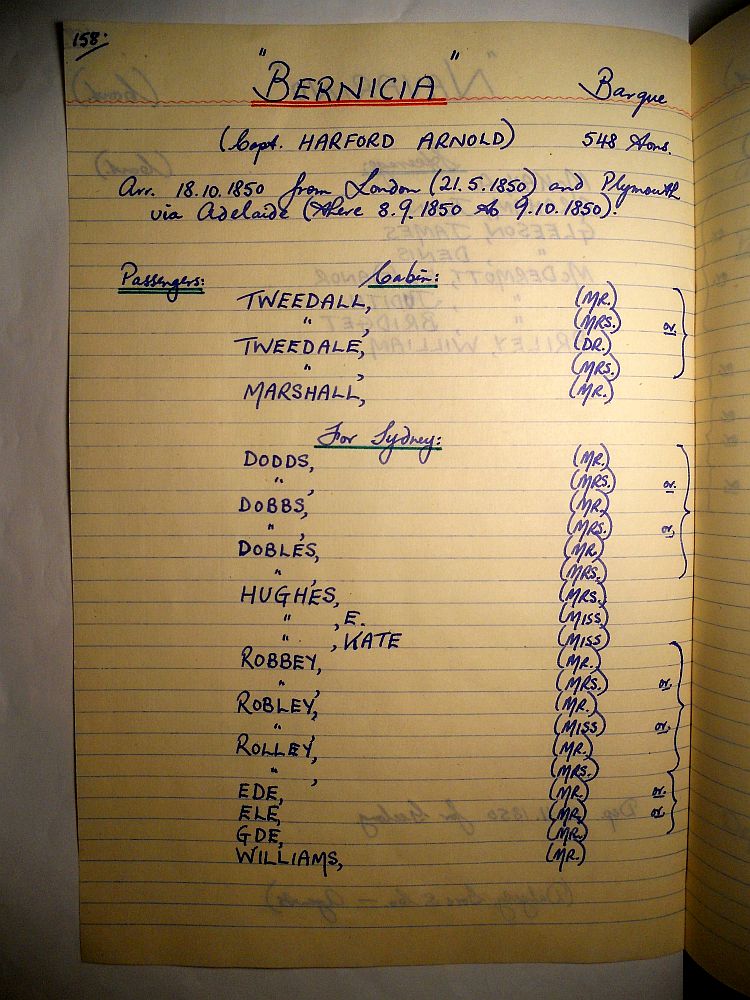 158.
"BERNICIA" Barque
(Capt. HARFORD ARNOLD) 548 tons.
Arr. 18.10.1850 from London (21.5.1850) and Plymouth
via Adelaide (there 8.9.1850 to 9.10.1850).
Passengers: Cabin:
TWEEDALL, (MR.)
" , (MRS.) or
TWEEDALE, (DR.)
" , (MRS.)
MARSHALL, (MR.)
For Sydney:
DODDS, (MR.)
" , (MRS.) or.
DOBBS, (MR.)
" , (MRS.) or.
DOBLES, (MR.)
" , (MRS.)
HUGHES, (MRS.)
" , E. (MISS)
" , KATE (MISS)
ROBBEY, (MR.)
" , (MRS.) or.
ROBLEY, (MR.)
" , (MISS) or.
ROLLEY, (MR.)
" , (MRS.)
EDE, (MR.) or.
ELE, (MR.) or.
GDE, (MR.)
WILLIAMS, (MR.)